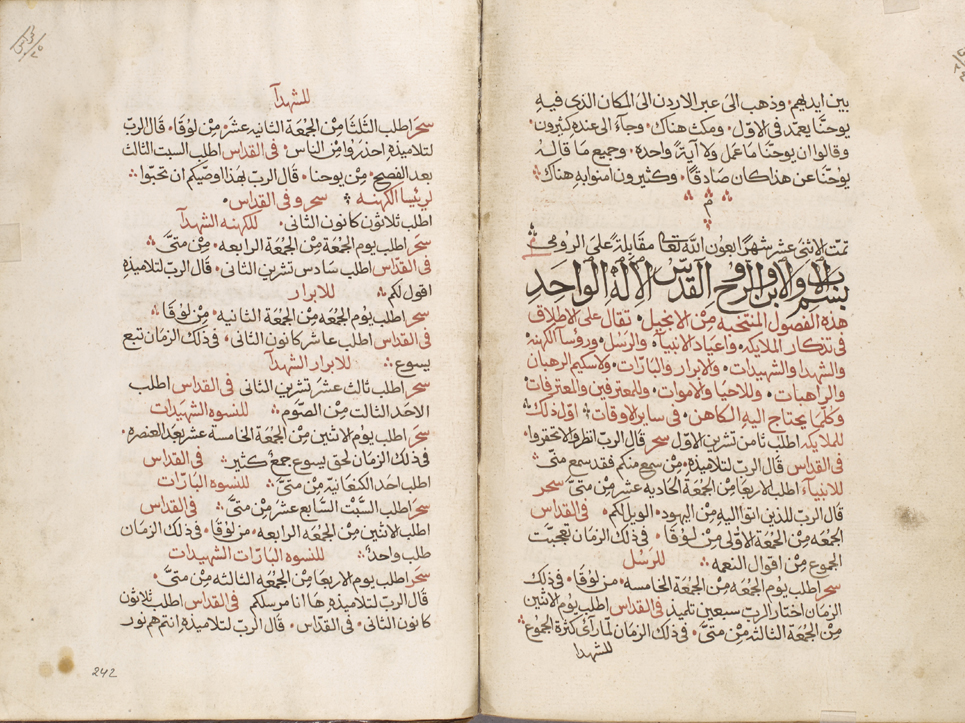 بين ايديهم· وذهب الى عبر الاردن الى المكان الذى فيه
يوحنا يعمد فى الاول· ومكث هناك· وجآء الى عنده كثيرون·
وقالوا ان يوحنا ما عمل ولا آية واحده· وجميع ما قاله
يوحنا عن هذا كان صادقًا· وكثيرون امنوا به هناك
م
تمت الاثنى عشر شهرًا بعون الله تعا مقابلةً على الرومى
بسم الاب والابن والروح القدس الاله الواحد
هذه الفصول المنتخبه من الانجيل· تقال على الاطلاق
فى تذكار الملايكه· واعياد الانبيآ· والرسل· وروسآ الكهنه
والشهدا والشهيدات· والابرار والبارّات· ولاسكيم الرهبان
والراهبات· وللاحيا والاموات· وللمعترفين والمعترفات
وكلما يحتاج اليه الكاهن· فى ساير الاوقات· اقل ذلك
للملايكه اطلب ثامن تشرين الاول سحر قال الرب انظروا لا تحقروا·
فى القداس قال الرب لتلاميذه· من سمع منكم فقد سمع منى
للانبيآء اطلب الاربعا من الجمعة الحاديه عشر من متى سحر
قال الرب للذين اتوا اليه من اليهود· الويل لكم· فى القداس
الجمعه من الجمعة الاولى من لوقا· فى ذلك الزمان تعجبت
الجموع من اقوال النعمه للرسل
سحر اطلب يوم الجمعه من الجمعة الخامسه· من لوقا· فى ذلك
الزمان اختار الرب سبعين تلميذ فى القداس اطلب يوم الاثنين
من الجمعة الثالثه من متى· فى ذلك الزمان لما رآى كثرة الجموع
للشهدا
للشهدآ
سحر اطلب الثلثا من الجمعة الثانيه عشر· من لوقا· قال الرب
لتلاميذه احذروا من الناس· فى القداس اطلب السبت الثالث
بعد الفصح· من يوحنا· قال الرب بهذا اوصيكم ان تحبوا
لريسا الكهنه سحر وفى القداس·
اطلب ثلاثون كانون الثانى· للكهنه الشهدآ
سحر اطلب يوم الجمعة من الجمعة الرابعه· من متى
فى القداس اطلب سادس تشرين الثانى· قال الرب لتلاميذه
اقول لكم للابرار
سحر اطلب يوم الجمعه من الجمعة الثانيه· من لوقا
فى القداس اطلب عاشر كانون الثانى· فى ذلك الزمان تبع
يسوع للابرار الشهدآ
سحر اطلب ثالث عشر تشرين الثانى فى القداس اطلب
الاحد الثالث من الصوم للنسوه الشهيدات
سحر اطلب يوم الاثنين من الجمعة الخامسة عشر بعد العنصره·
فى ذلك الزمان لحق يسوع جمع كثير فى القداس
اطلب احد الكنعانيه من متى للنسوه البارّات
سحر اطلب السبت السابع عشر من متى فى القداس
اطلب الاثنين من الجمعه الرابعه· من لوقا· فى ذلك الزمان
طلب واحدٌ للنسوه البارّات الشهيدات
سحر اطلب يوم الاربعا من الجمعه الثالثه من متى·
قال الرب لتلاميذه ها انا مرسلكم فى القداس اطلب ثلاثون
كانون الثانى· فى القداس· قال الرب لتلاميذه انتم هم نور
242